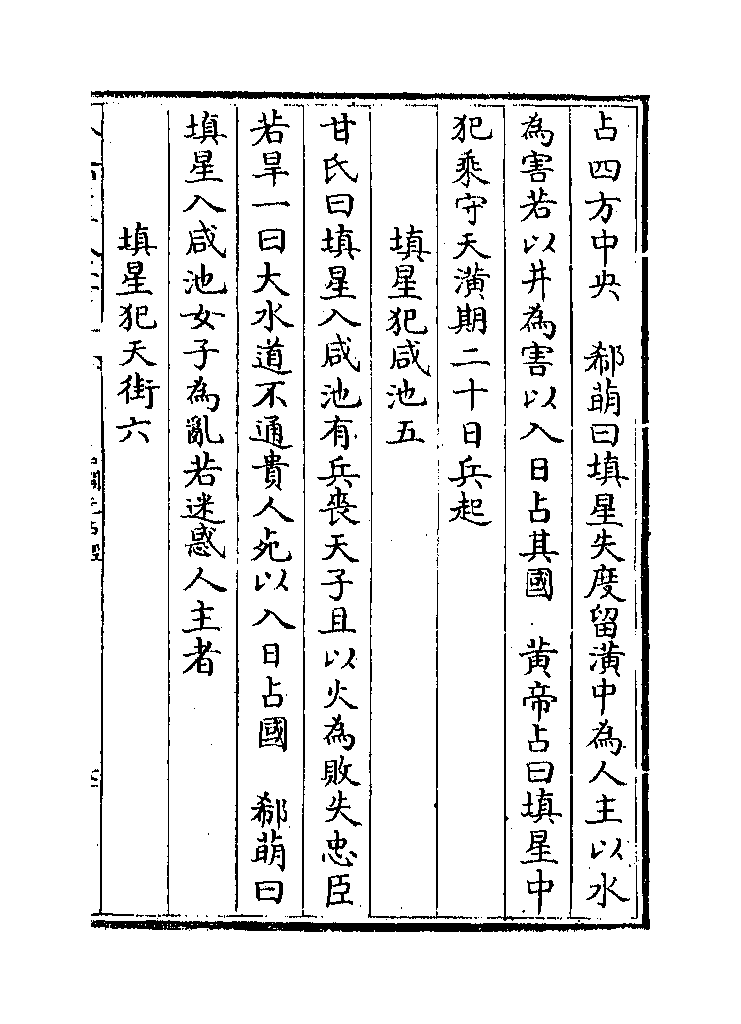 占四方中央　郗萌曰填星失度留潢中為人主以水
為害若以井為害以入日占其國　黃帝占曰填星中
犯乘守天潢期二十日兵起
填星犯咸池五
甘氏曰填星入咸池有兵喪天子且以火為敗失忠臣
若旱一曰大水道不通貴人死以入日占國　郗萌曰
填星入咸池女子為亂若迷惑人主者
填星犯天街六